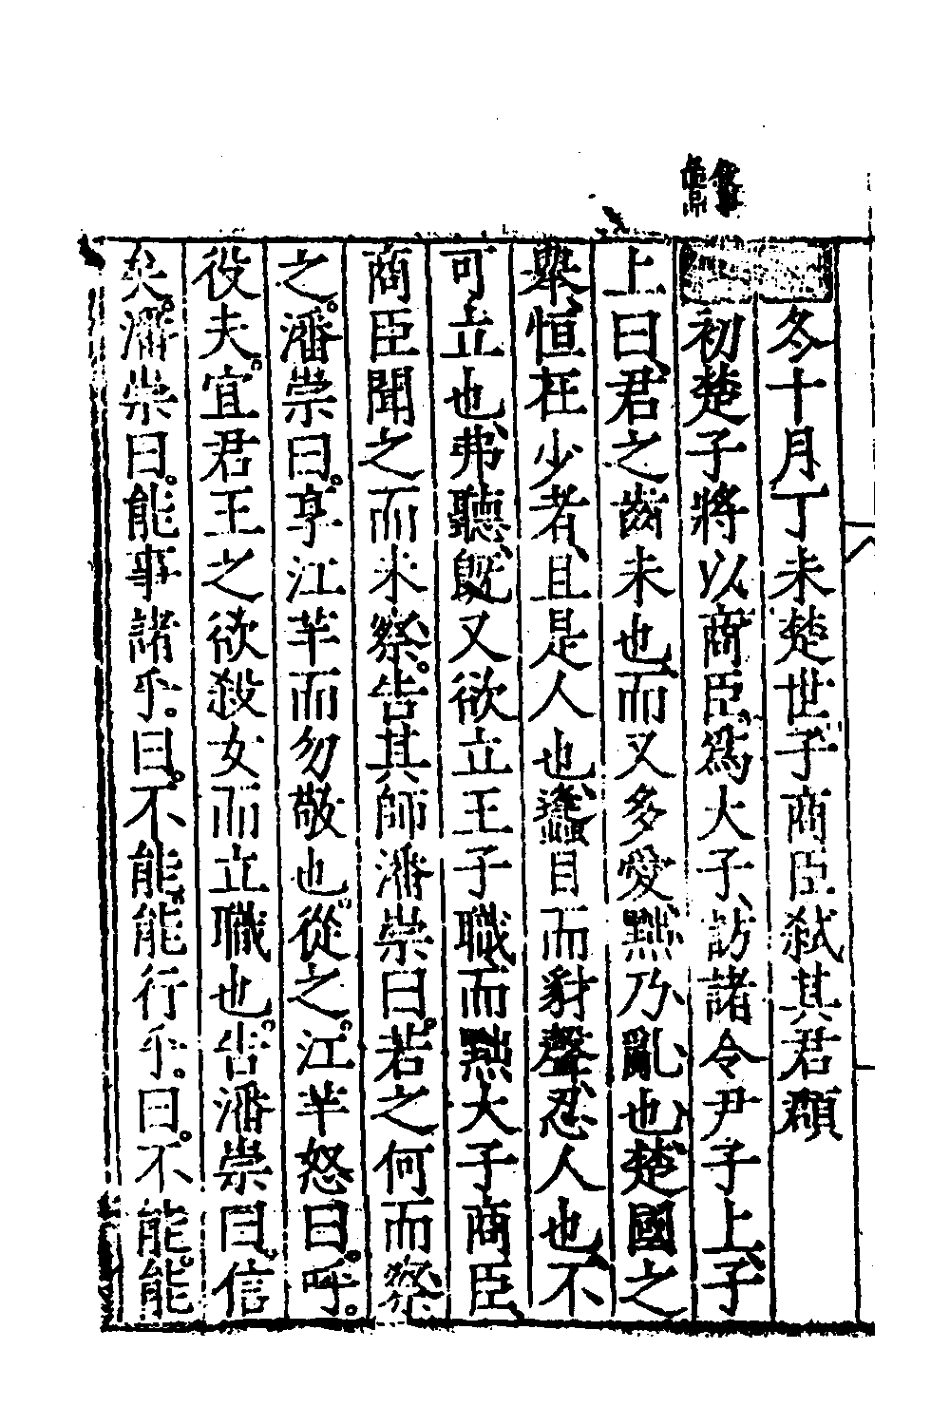 冬十月丁未楚世子商臣弒其君頵
初楚子將以商臣爲大子訪諸令尹子上子
上曰君之齒未也而又多愛黜乃亂也楚國之
舉恒在少者且是人也蠭目而豺聲忍人也不
可立也弗聽既又欲立王子職而黜大子商臣
商臣聞之而未察告其師潘崇曰若之何而察
之潘崇曰享江芉而勿敬也從之江芉怒曰呼
役夫宜君王之欲殺女而立職也告潘崇曰信
矣潘崇曰能事諸乎曰不能能行乎曰不能能